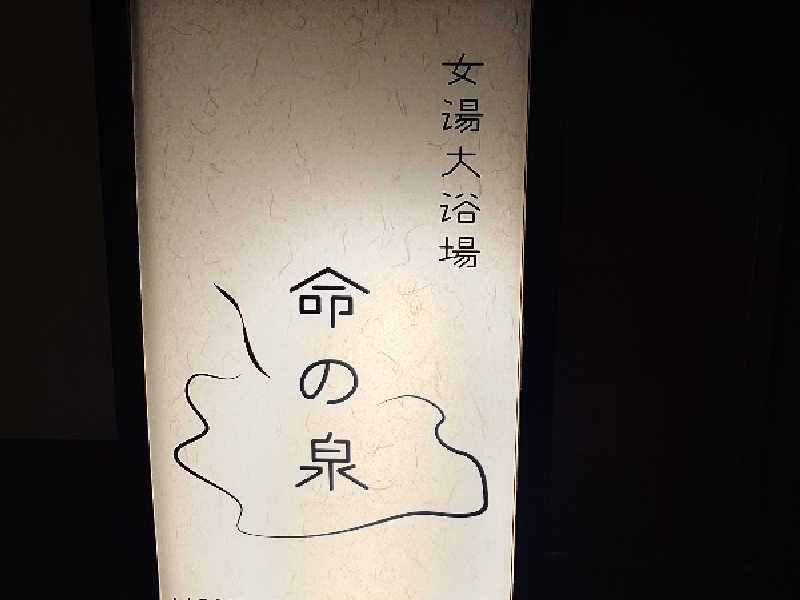 女湯大浴場
命の泉